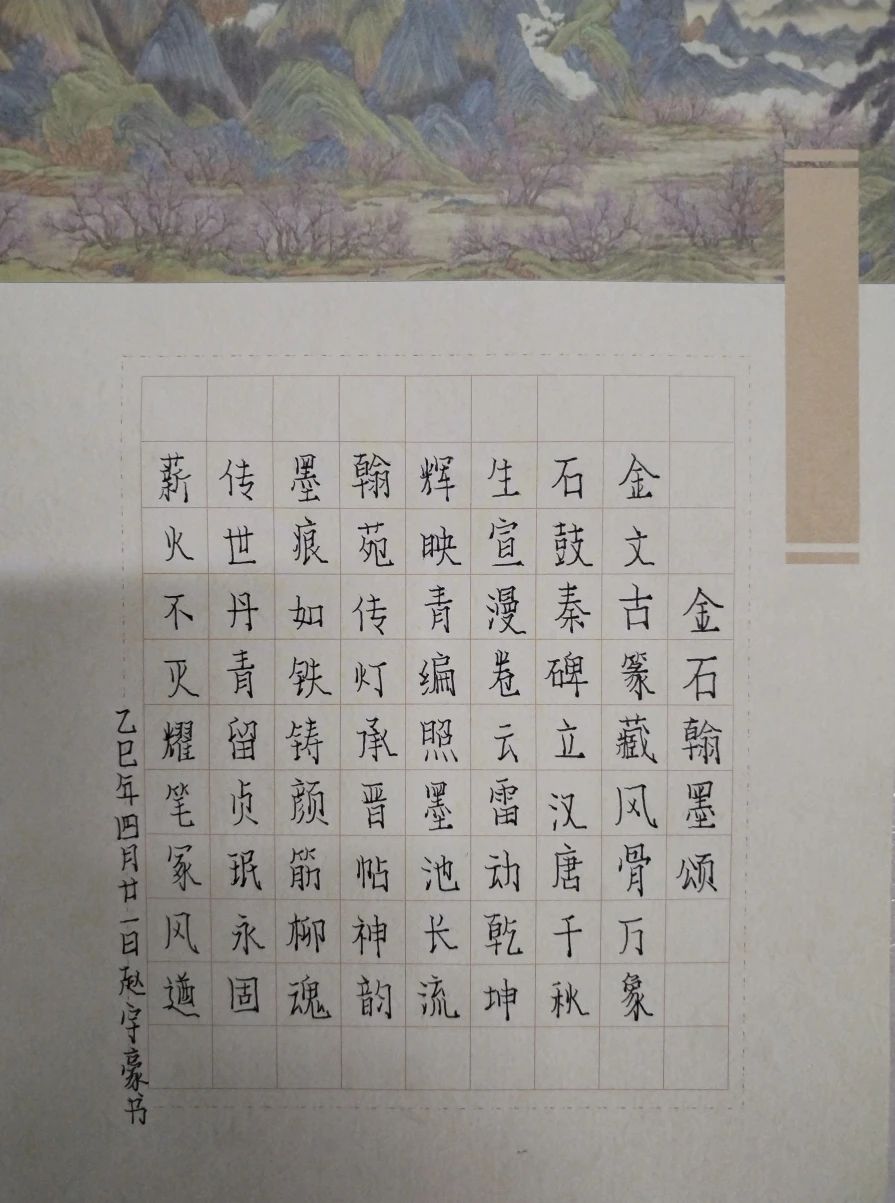 金石翰墨颂
金文古篆藏风骨万象
石鼓秦碑立汉唐千秋
生宣漫卷云雷动乾坤
辉映青编照墨池长流
翰苑传灯承晋帖神韵
墨痕如铁铸颜筋柳魂
传世丹青留贞珉永固
薪火不灭耀笔冢风遒
乙巳年四月廿一日赵宇豪书